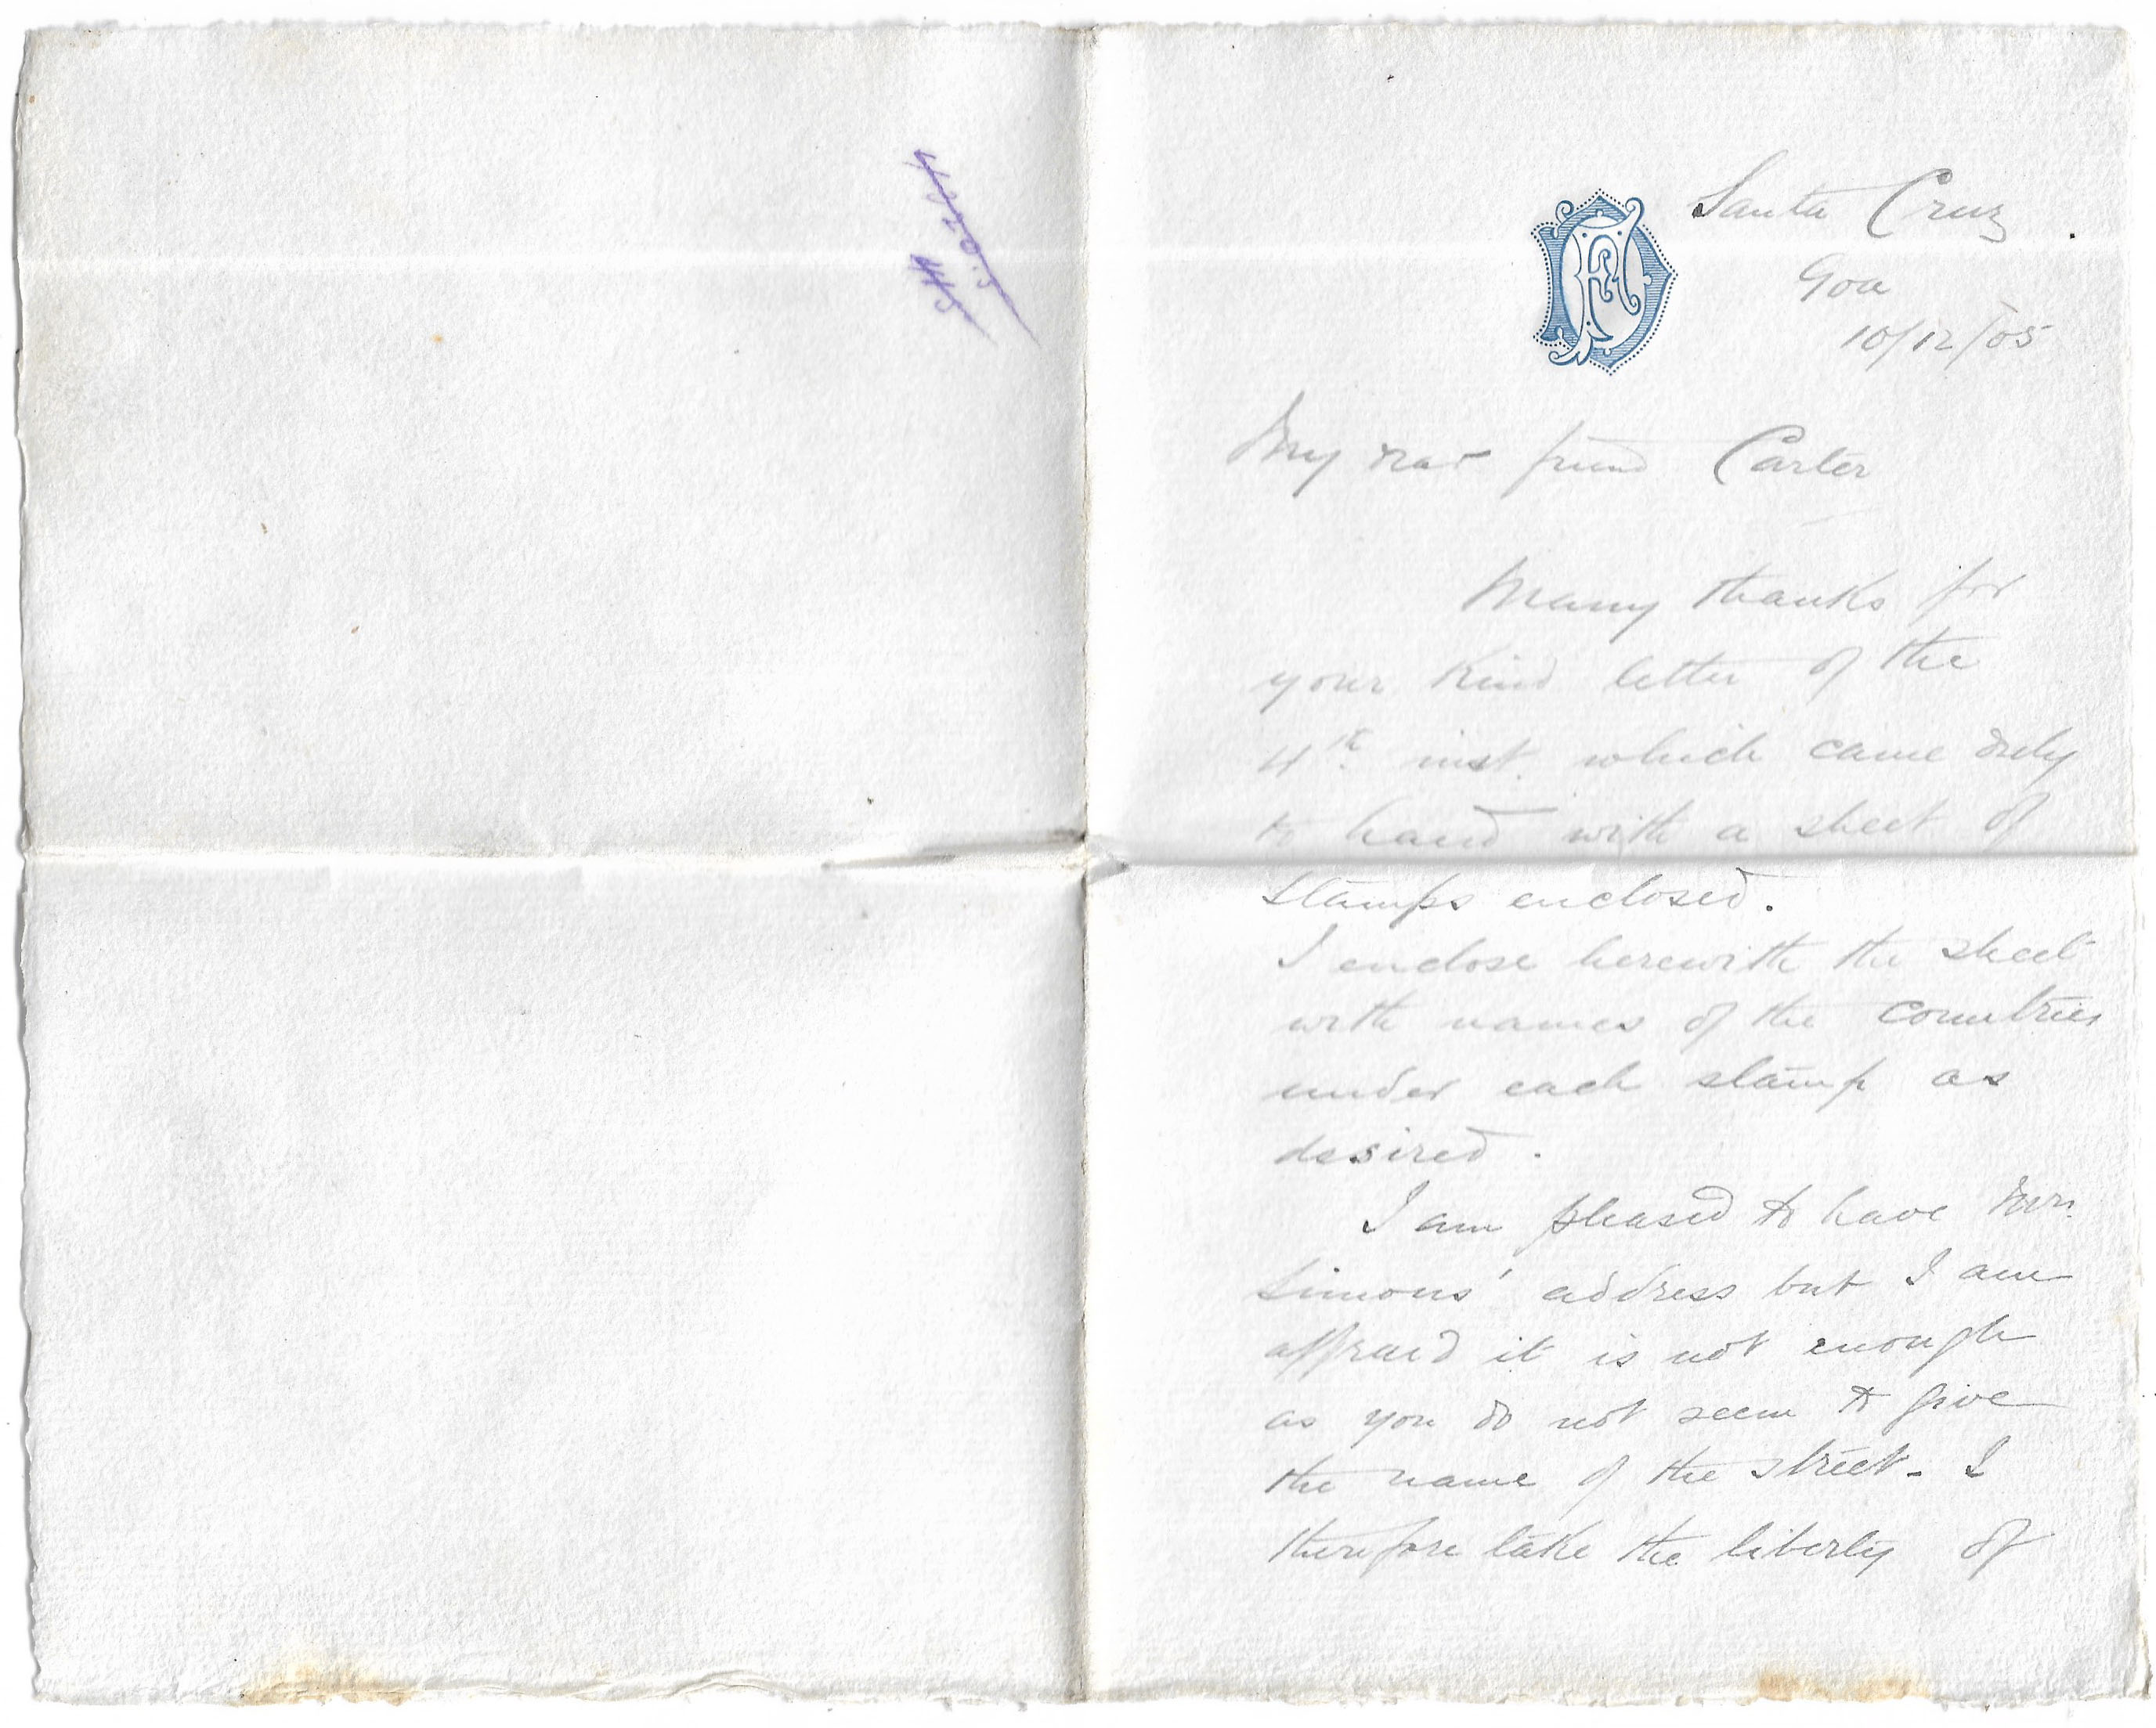 Santa Cruz
Goa
10/12/05
My dear friend Carter
Many thanks for
your kind letter of the
4th inst. which came duly
to hand with a sheet of
stamps enclosed.
I enclose herewith the sheet
with names of the countries
under each stamp as
desired.
I am pleased to have Mrs.
Simons' address but I am
affraid it is not enough
as you do not seem to give
the name of the street - I
therefore take the liberty of